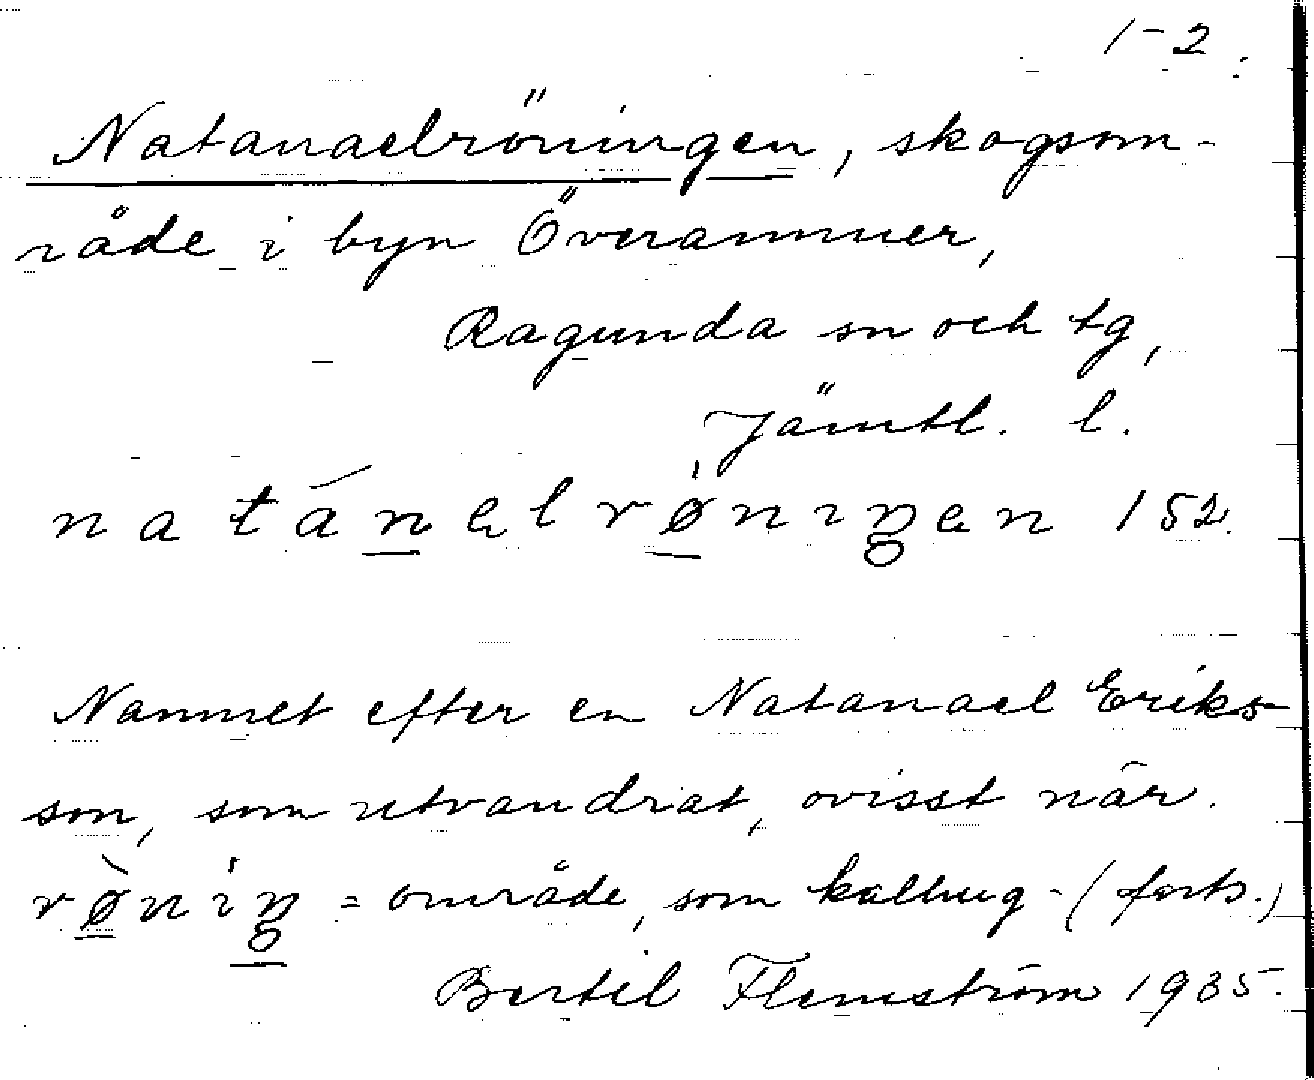 1-2.
Natanaelröningen, skogsom-
råde i byn Överammer,
Ragunda sn och tg,
Jämtl. l.
natánɐlrøniŋɐn 152.
Namnet efter en Natanael Eriks-
son, som utvandrat, ovisst när.
rø̀niŋ = område, som kalhug- (forts.)
Bertil Flemström 1935.